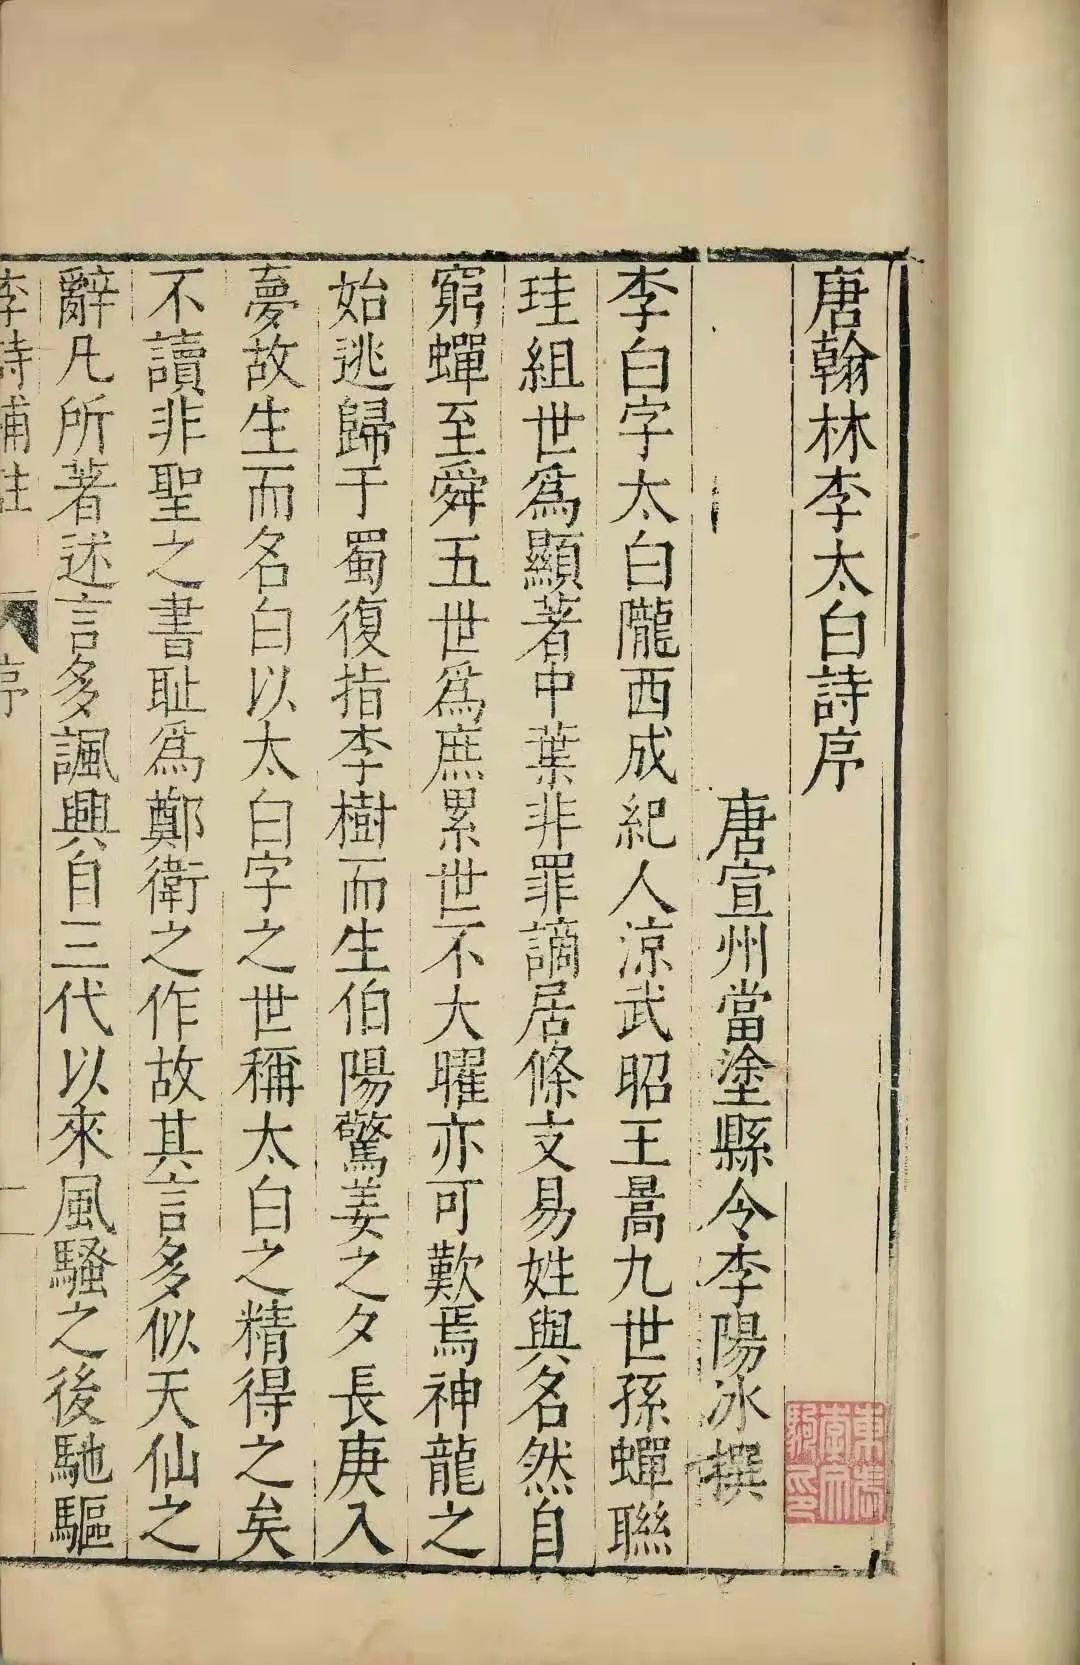 唐翰林李太白詩序
唐宣州當塗縣令李陽冰撰
李白字太白隴西成紀人涼武昭王暠九世孫蟬聯
珪組世爲顯著中葉非罪謫居條支易姓與名然自
窮蟬至舜五世爲庶累世不大曜亦可歎焉神龍之
始逃歸于蜀復指李樹而生伯陽驚姜之夕長庚入
夢故生而名白以太白字之世稱太白之精得之矣
不讀非聖之書恥爲鄭衛之作故其言多似天仙之
辭凡所著述言多諷興自三代以來風騷之後馳驅
李詩補註 序 一